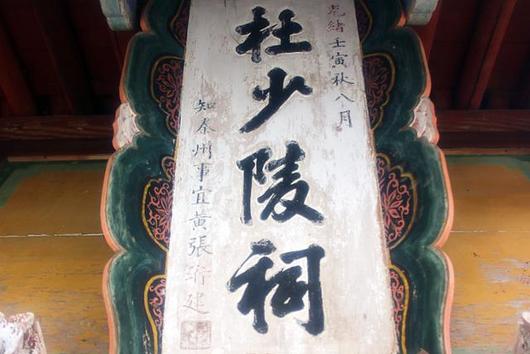 光緒壬寅秋八月
杜少陵祠
知秦州事宜黃張珩建